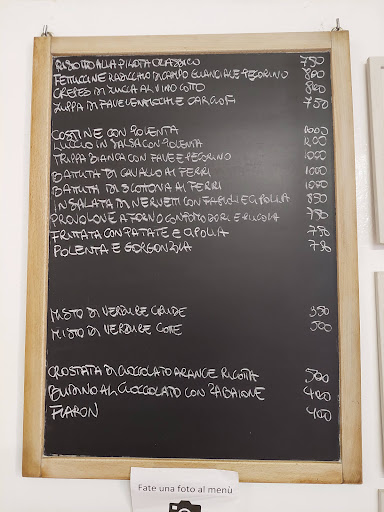 RISOTTO ALLA PILOTA CLASSICO 750
FETTUCCINE RADICCHIO DI CAMPO GUANCIALE PECORINO 800
CREPES DI ZUCCA AL VINO COTTO 800
ZUPPA DI FAVE LENTICCHIE CARCIOFI 750
COSTINE CON POLENTA 1000
LUCCIO IN SALSA CON POLENTA 1200
TRIPPA BIANCA CON FAVE E PECORINO 1000
BATTUTA DI CAVALLO AI FERRI 1000
BATTUTA DI SCOTTONA AI FERRI 1000
INSALATA DI NERVETTI CON FAGIOLI E CIPOLLA 850
PROVOLONE A FORNO CON POMODORI E RUCOLA 750
FRITTATA CON PATATE E CIPOLLA 750
POLENTA E GORGONZOLA 750
MISTO DI VERDURE CRUDE 350
MISTO DI VERDURE COTTE 500
CROSTATA DI CIOCCOLATO ARANCE RICOTTA 500
BUDINO AL CIOCCOLATO CON ZABAIONE 400
FIARON 400
Fate una foto al menù